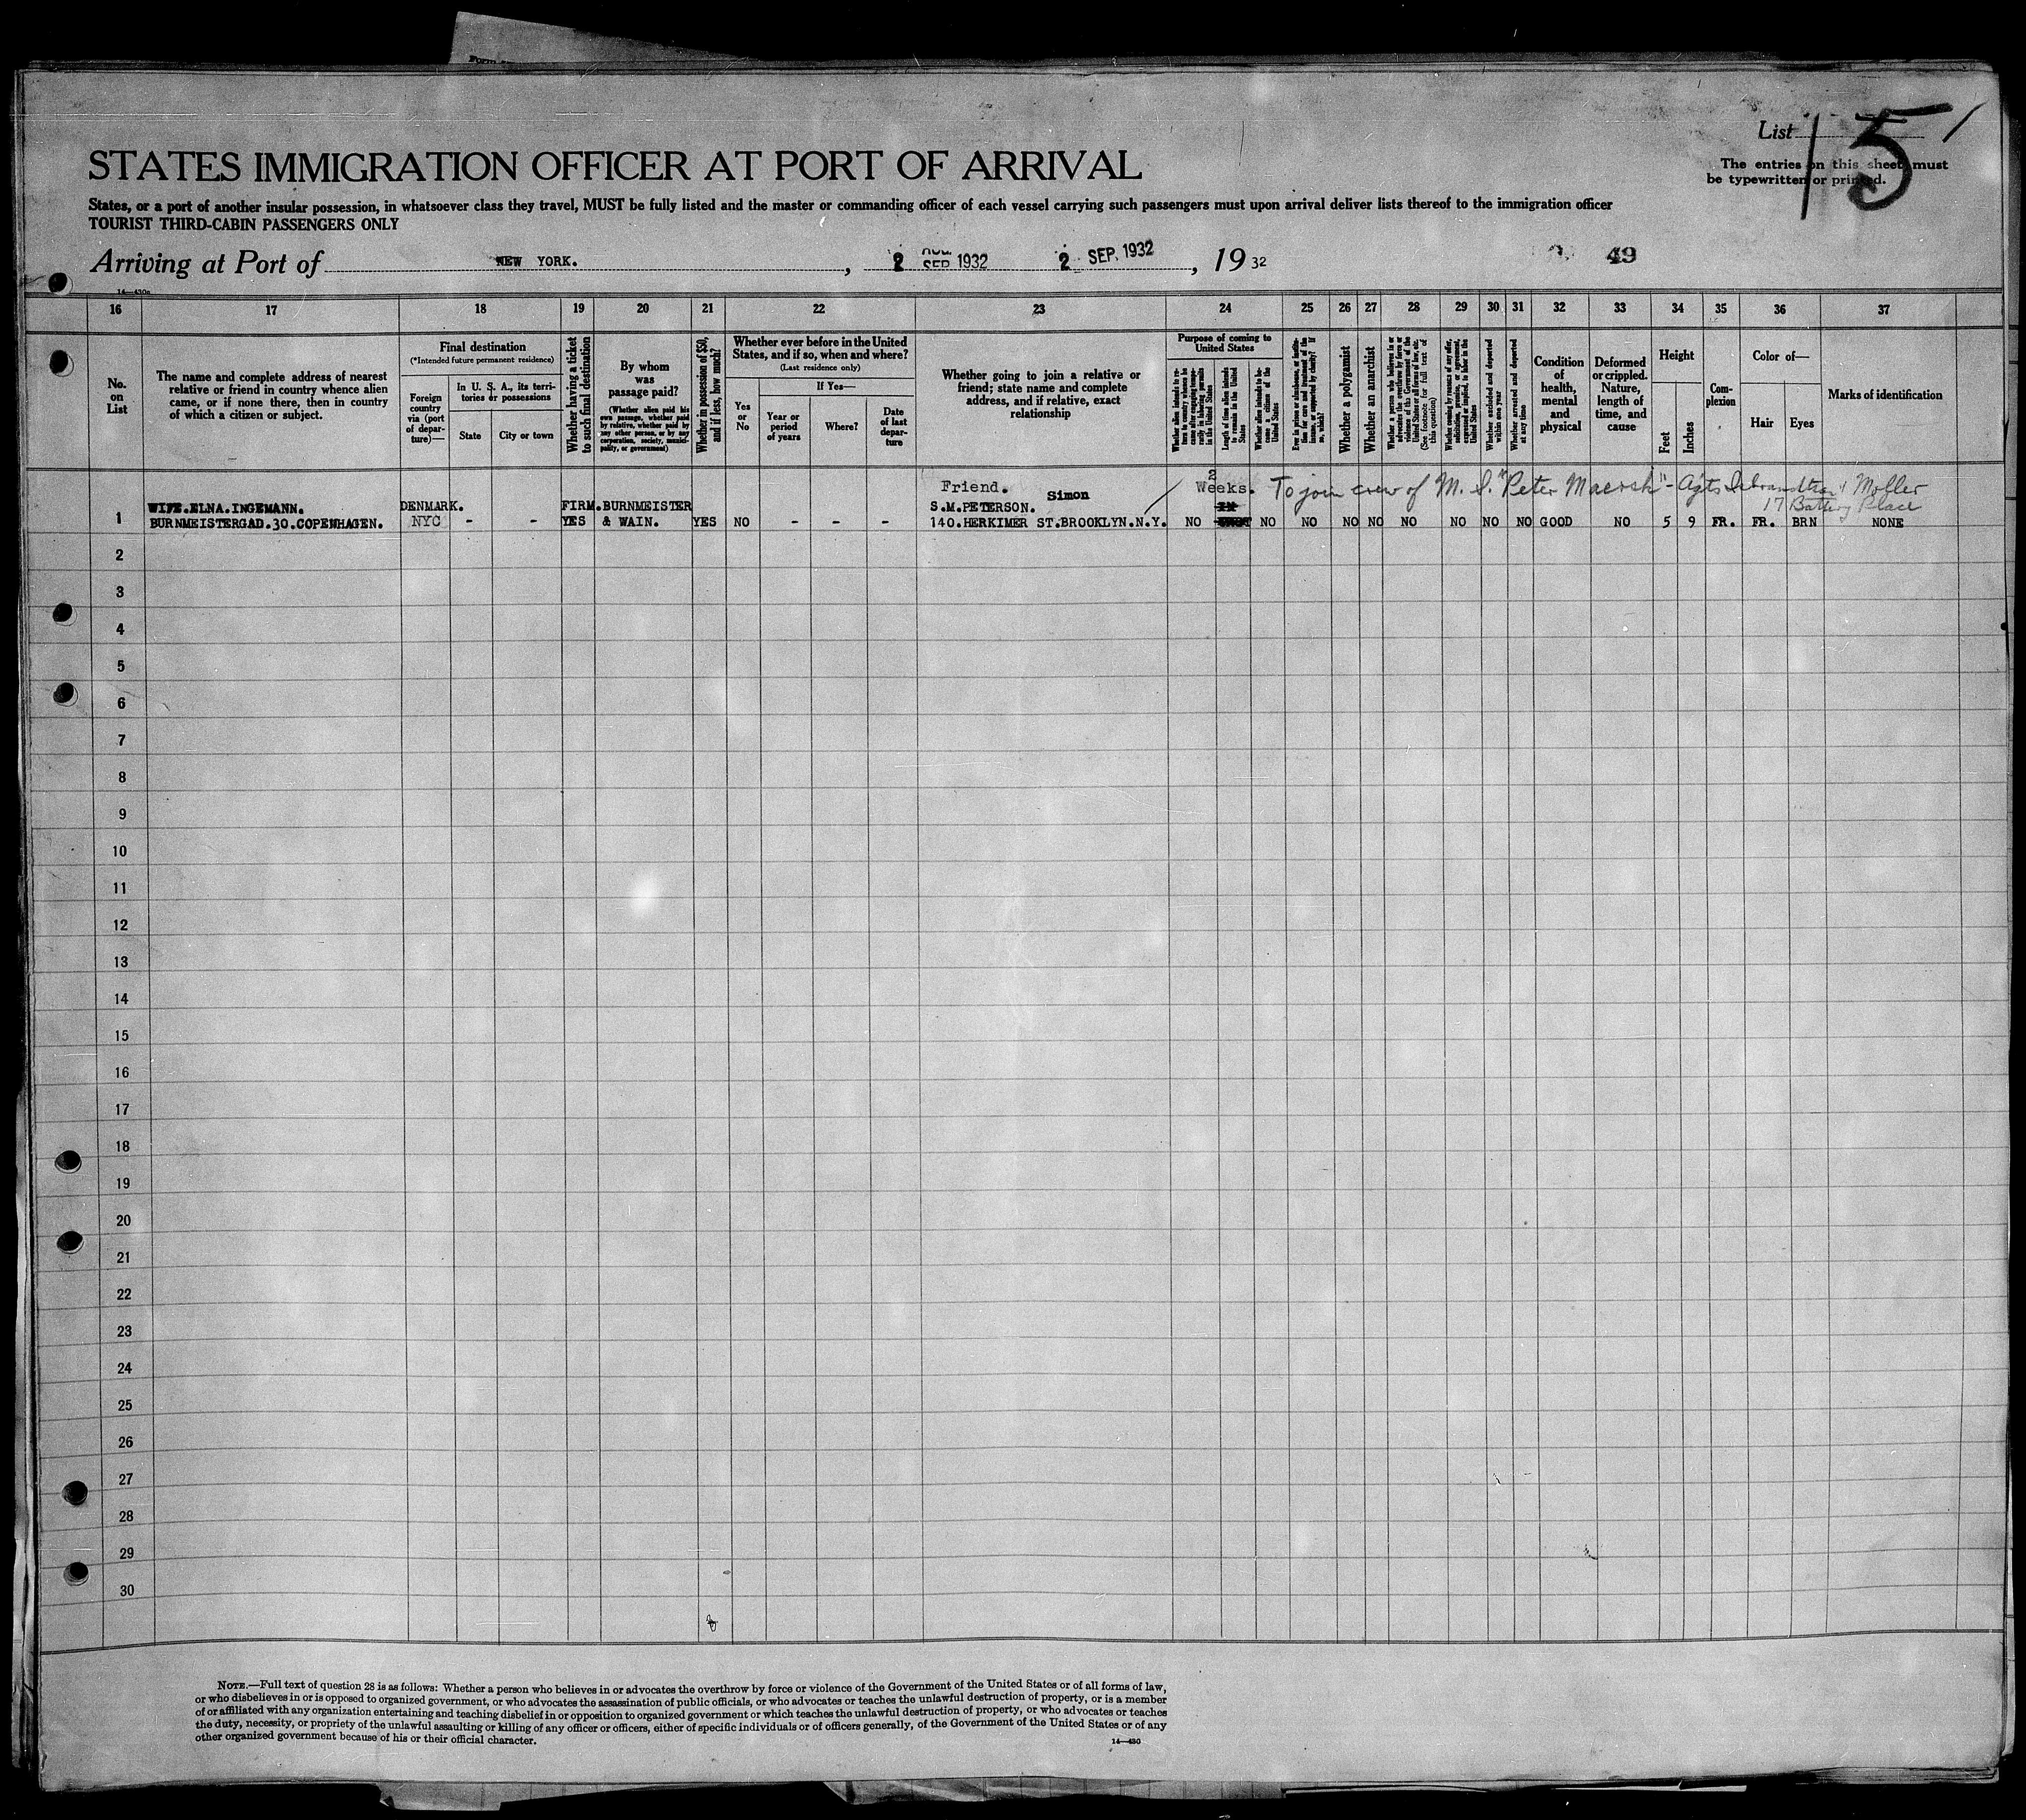 Form
List 15
The entries on this sheet must
be typewritten or printed.
STATES IMMIGRATION OFFICER AT PORT OF ARRIVAL
States, or a port of another insular possession, in whatsoever class they travel, MUST be fully listed and the master or commanding officer of each vessel carrying such passengers must upon arrival deliver lists thereof to the immigration officer
TOURIST THIRD-CABIN PASSENGERS ONLY
Arriving at Port of NEW YORK. , 2 SEP 1932 2 SEP. 1932 , 19 32
49
14—430a
16 17 18 19 20 21 22 23 24 25 26 27 28 29 30 31 32 33 34 35 36 37
No.
on
List
The name and complete address of nearest
relative or friend in country whence alien
came, or if none there, then in country
of which a citizen or subject.
Final destination
(*Intended future permanent residence)
Foreign
country
via (port
of depar-
ture)—
In U. S. A., its terri-
tories or possessions
State
City or town
Whether having a ticket
to such final destination
By whom
was
passage paid?
(Whether alien paid his
own passage, whether paid
by relative, whether paid by
any other person, or by any
corporation, society, munici-
pality, or government)
Whether in possession of $50,
and if less, how much?
Whether ever before in the United
States, and if so, when and where?
(Last residence only)
Yes
or
No
If Yes—
Year or
period
of years
Where?
Date
of last
depar-
ture
Whether going to join a relative or
friend; state name and complete
address, and if relative, exact
relationship
Purpose of coming to
United States
Whether alien intends to re-
turn to country whence he
came after engaging tempo-
rarily in laboring pursuits
in the United States
Length of time alien intends
to remain in the United
States
Whether alien intends to be-
come a citizen of the
United States
Ever in prison or almshouse, or institu-
tion for care and treatment of the
insane, or supported by charity? If
so, which?
Whether a polygamist
Whether an anarchist
Whether a person who believes in or
advocates the overthrow by force or
violence of the Government of the
United States or all forms of law, etc.
(See footnote for full text of
this question)
Whether coming by reason of any offer,
solicitation, promise, or agreement,
expressed or implied, to labor in the
United States
Whether excluded and deported
within one year
Whether arrested and deported
at any time
Condition
of
health,
mental
and
physical
Deformed
or crippled.
Nature,
length of
time, and
cause
Height
Feet
Inches
Com-
plexion
Color of—
Hair
Eyes
Marks of identification
Friend. Simon 2 Weeks. To join crew of M. S. "Peter Maersk" - Agts Isbrandtsen Moller
WIFE.ELNA.INGEMANN. DENMARK. FIRM.BURNMEISTER S.M.PETERSON. 17 Battery Place
1 BURNMEISTERGAD.30.COPENHAGEN. NYC - - YES & WAIN. YES NO - - - 140.HERKIMER ST.BROOKLYN.N.Y. NO NO NO NO NO NO NO NO NO GOOD NO 5 9 FR. FR. BRN NONE
2
3
4
5
6
7
8
9
10
11
12
13
14
15
16
17
18
19
20
21
22
23
24
25
26
27
28
29
30
NOTE.—Full text of question 28 is as follows: Whether a person who believes in or advocates the overthrow by force or violence of the Government of the United States or of all forms of law,
or who disbelieves in or is opposed to organized government, or who advocates the assassination of public officials, or who advocates or teaches the unlawful destruction of property, or is a member
of or affiliated with any organization entertaining and teaching disbelief in or opposition to organized government or which teaches the unlawful destruction of property, or who advocates or teaches
the duty, necessity, or propriety of the unlawful assaulting or killing of any officer or officers, either of specific individuals or of officers generally, of the Government of the United States or of any
other organized government because of his or their official character.
14—430